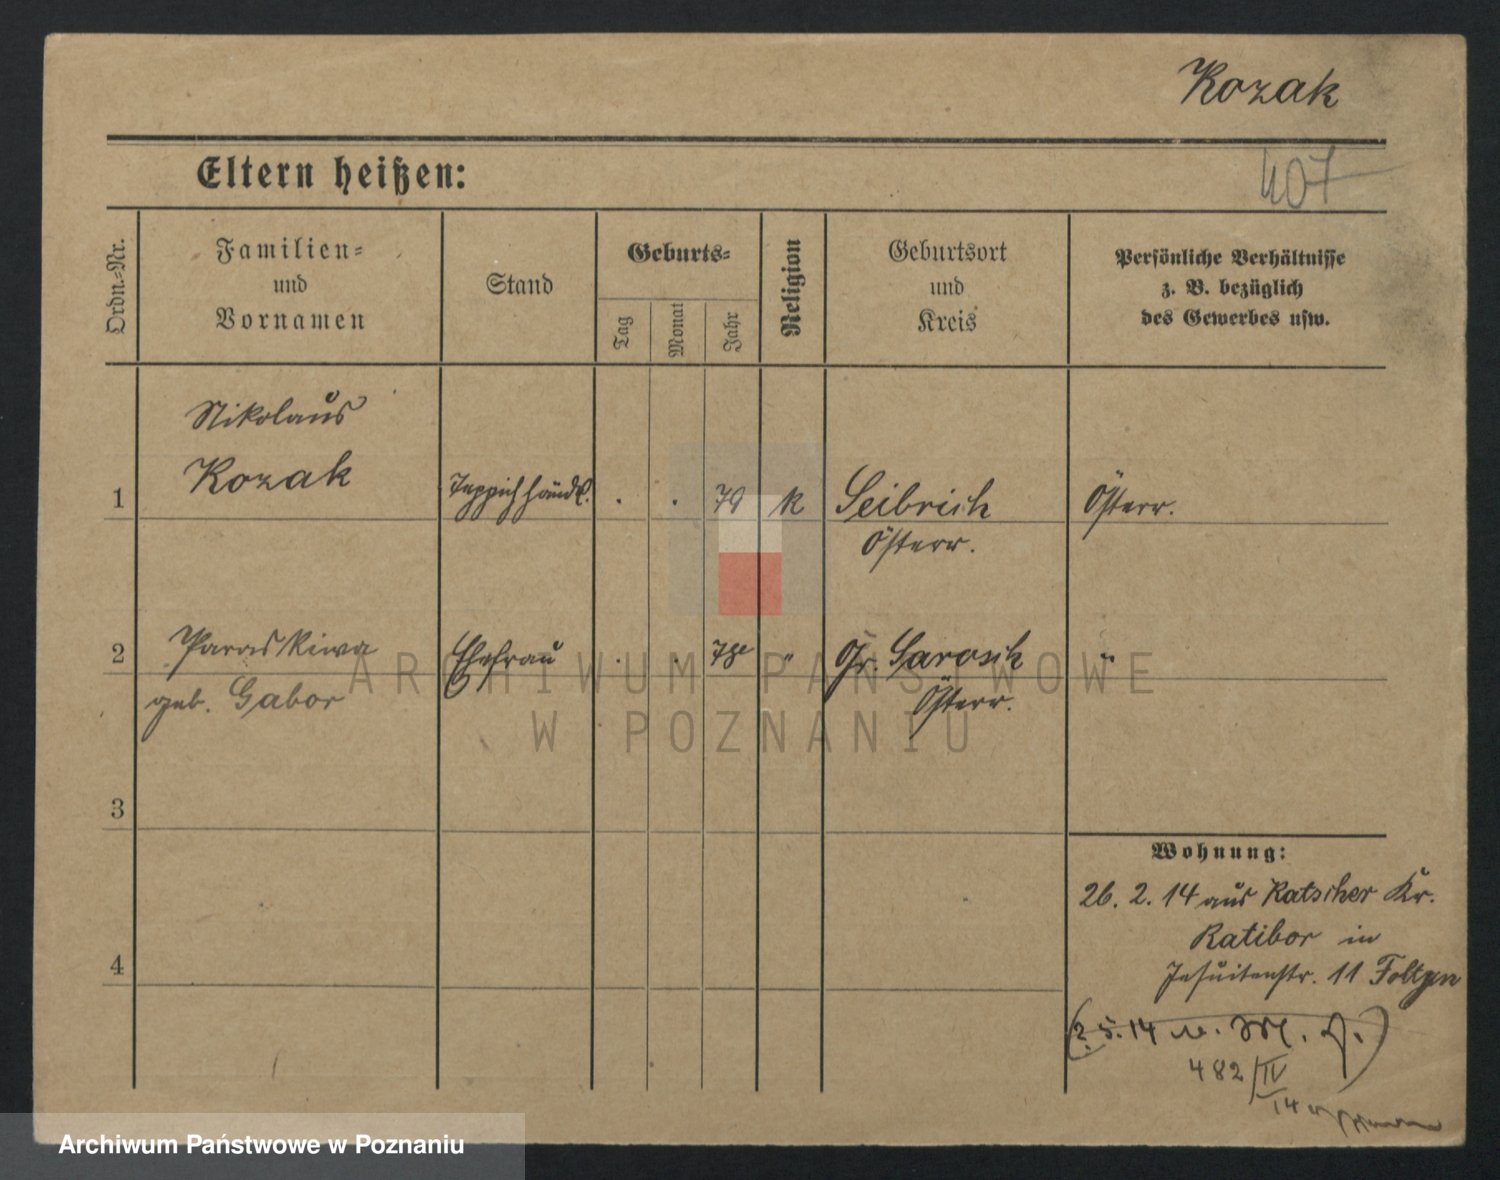 Kozak
Eltern heißen:
407
Ordn.=Nr.
Familien=
und
Vornamen
Stand
Geburts=
Tag
Monat
Jahr
Religion
Geburtsort
und
Kreis
Persönliche Verhältnisse
z. B. bezüglich
des Gewerbes usw.
Nikolaus
1 Kozak Teppichhändl. . . 79 k Seibrich Österr.
Österr.
2 Paraskiwa Ehefrau . . 78 " Gr. Sarosch "
geb. Gabor Österr.
3
Wohnung:
26. 2. 14 aus Ratscher Kr.
Ratibor in
4 Jesuitenstr. 11
(2. 5. 14
482/IV
14
ARCHIWUM PAŃSTWOWE
W POZNANIU
Archiwum Państwowe w Poznaniu